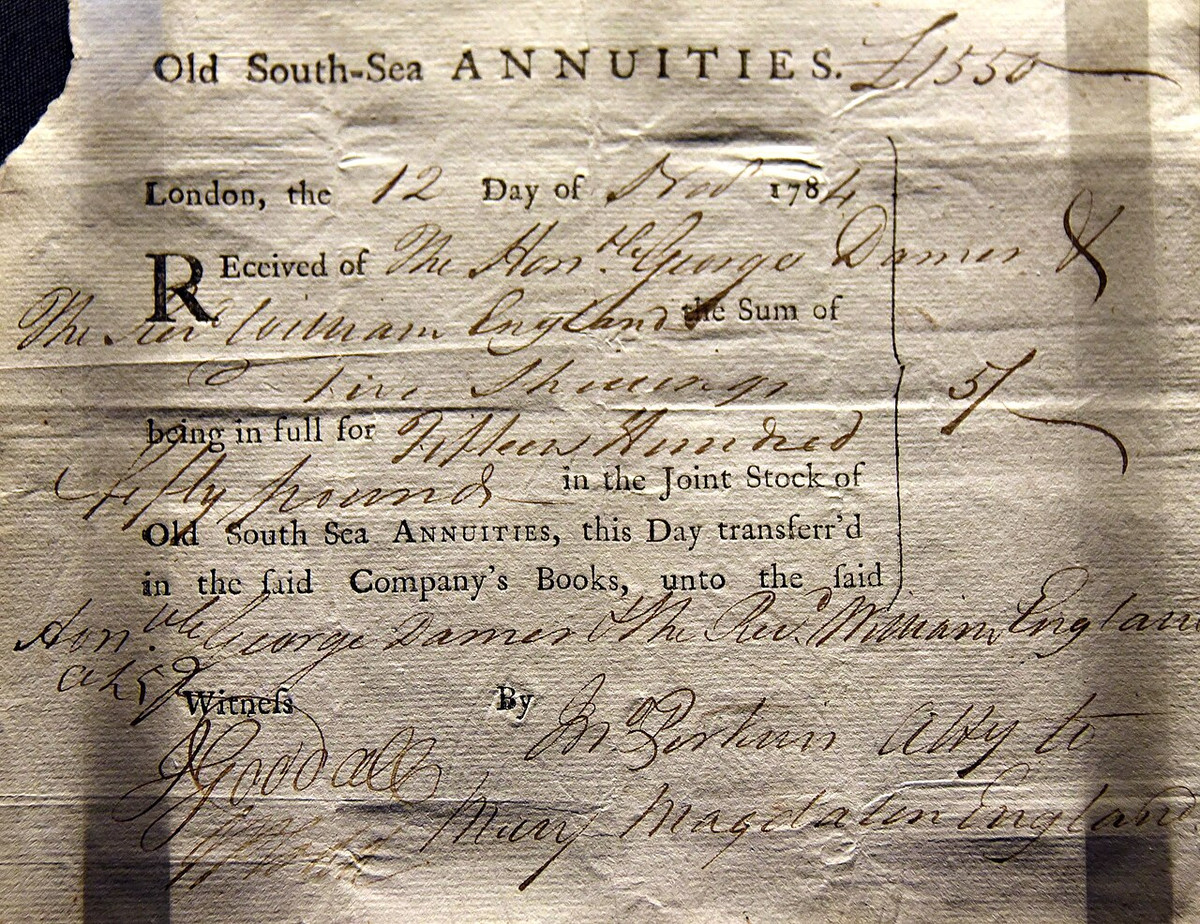 Old South-Sea ANNUITIES. £1550
London, the 12 Day of Nov 1784
REceived of The Honble George Damer &
The Revd William England the Sum of
Five Shillings 5/
being in full for Fifteen Hundred
& fifty pounds in the Joint Stock of
Old South Sea ANNUITIES, this Day transferr'd
in the ſaid Company's Books, unto the ſaid
Honble George Damer & the Revd William England
Witneſs By Jno Perkins Atty to
J Goodall
Mary Magdalen England